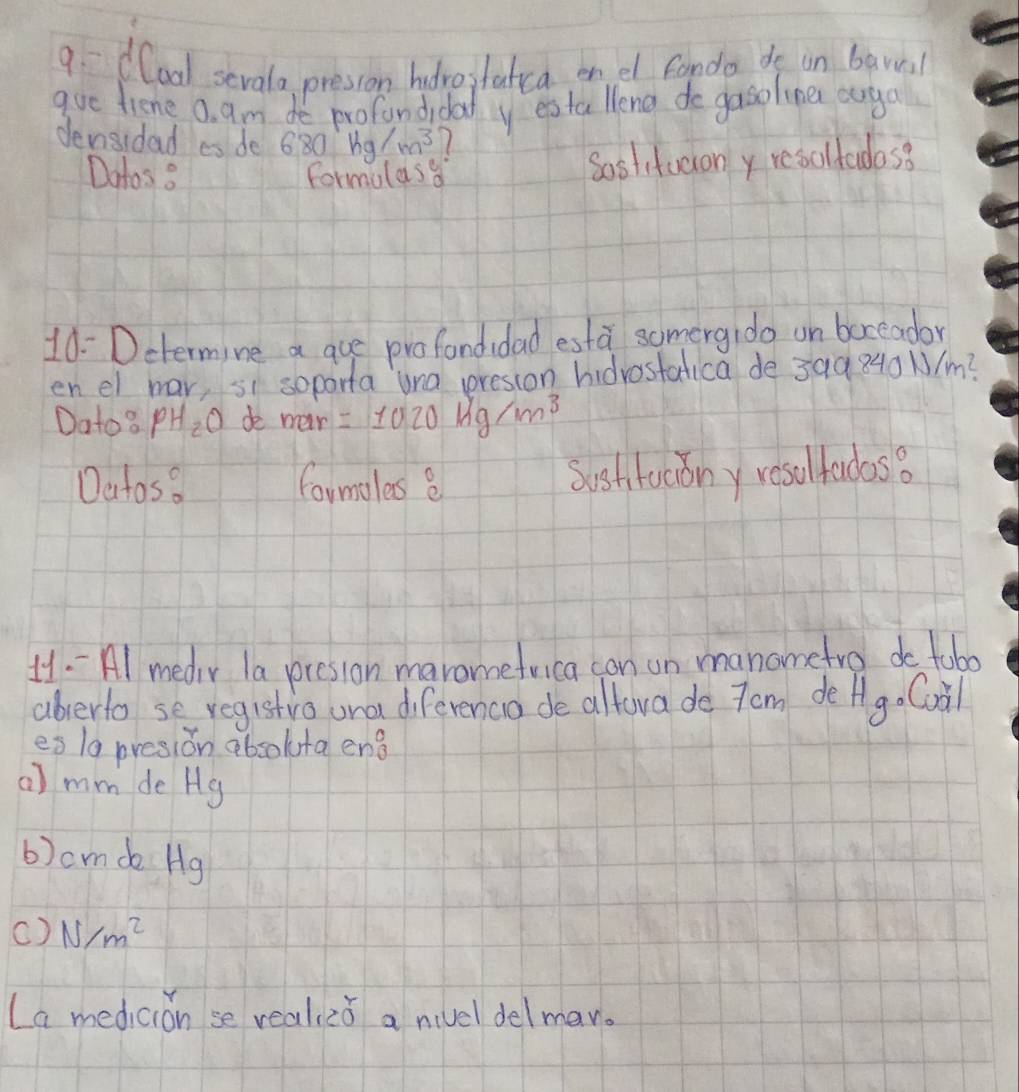 9.- ¿Cual sera la presion hidrostatica en el fondo de un barril
que tiene 0.9m de profundidad y esta lleno de gasolina cuya
densidad es de 680 kg/m³?
Datos: Formulas: Sustitucion y resultados:
10.- Determine a que profundidad está sumergido un buceador
en el mar, si soporta una presion hidrostatica de 399 840 N/m².
Dato: ρH₂O de mar = 1020 Kg/m³
Datos: formulas: Sustitución y resultados:
11.- Al medir la presion manometrica con un manometro de tubo
abierto se registro una diferencia de altura de 7cm de Hg. Cuál
es la presión absoluta en:
a) mm de Hg
b) cm de Hg
c) N/m²
La medición se realizó a nivel del mar.